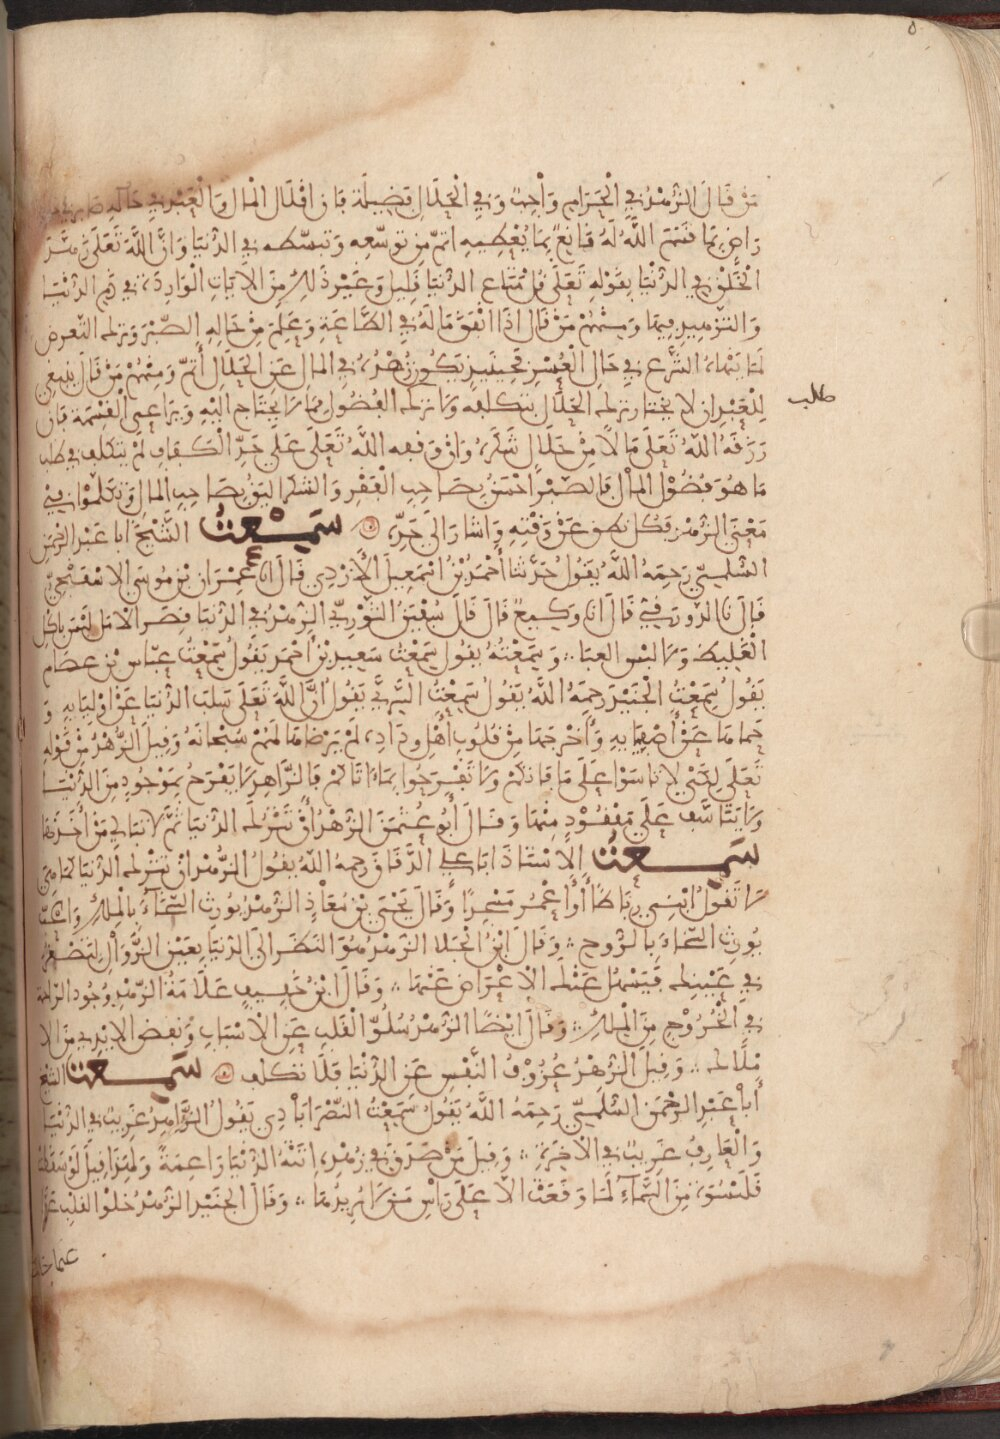 ٥
مَنْ قَالَ الزُّهْدُ فِي الْحَرَامِ وَاجِبٌ وَفِي الْحَلَالِ فَضِيلَة فَإن اقْلَال الْمَال وَالْعَبْدُ فِي حَالِهِ صَابِر
رَاضٍ بِمَا قَسَمَ اللَّهُ لَهُ قَانِعٌ بِمَا يُعْطِيهِ اتمّ مِن تَوسّعِهِ وَتَبَسّطه فِي الدُّنْيَا وَانَّ اللَّهَ تَعَلَى زَهَّدَ
الْخَلْقَ فِي الدُّنْيَا بِقَوْلِهِ تَعَلَى قُلْ مَتَاع الدُّنيَا قَلِيل وَغَيْر ذَلِكَ مِنَ الْآيَاتِ الْوَارِدَة فِي ذَمِّ الدُّنْيَا
وَالتَّزْهِيدِ فِيهَا وَمِنْهُمْ مَنْ قَالَ اذَا انْفَقَ مَالَهُ فِي الطَّاعَةِ وَعَلِمَ مِنْ حَالِهِ الصَّبْرَ وَتَرك التعرض
لِمَا نَهَاهُ الشَّرْع فِي حَالِ الْعُسْرِ فَحِينَئِذٍ يَكُون زُهْدُهُ فِي المَالِ عَنِ الْحَلَالِ أَتمّ وَمِنْهُمْ مَنْ قَالَ يَنبغِي
طالب
لِلْعَبْدِ ان لا يختار ترك الحَلَال بتكلفه ولا ترك الفُضُول مما لا يُحْتَاج اليْهِ وَيراعِي القِسْمَة فَإن
رَزَقَهُ اللَّهُ تَعَلَى مَالًا مِنْ حَلَال شَكَرَهُ وَانْ وَقفه اللَّهُ تَعَلَى عَلَى حَدِّ الْكَفَافِ لَمْ يتكلف فِي طلب
مَا هُوَ فُضُوْل المال فَالصَّبْر احْسَنُ بِصَاحِبِ الْفَقْرِ وَالشكر اليَقُ بِصَاحِبِ المَالِ وَتكلمُوا فِي
مَعْنَى الزُّهْد فَكل نطق عَنْ وَقْتِهِ وَاشَارَ الَى حَدِّهِ سَمِعْتُ الشَّيْخَ ابا عَبْد الرحْمن
السُّلمِيّ رَحِمَهُ اللَّهُ يَقُولُ حَدَّثَنا أَحْمَدُ بْنُ اسْمَعِيلَ الْأَزْدِي قَالَ انا عِمْرَان بْن مُوسَى الإسفنجِيّ
قَالَ نا الدَّورَقِي قَالَ انا وَكِيع قَالَ قَالَ سُفْيَنُ الثَّوْرِيّ الزهْدُ فِي الدُّنْيَا قِصَر الْامل لَيْسَ باكل
الْغَلِيظ وَلا لبس العبا وَسَمِعْتُهُ يقُول سَمِعْتُ سَعِيد بْن أَحْمَد يَقُولُ سَمِعْتُ عبّاس بْن عصَام
يَقُولُ سَمِعْتُ الْجُنَيْد رَحِمَهُ اللَّهُ يَقُولُ سَمِعْتُ السَّرِيَّ يَقُولُ انَّ اللَّهَ تَعَلَى سَلَبَ الدُّنيَا عَنْ اوْلِيَايِهِ وَ
حَمَاهَا عَنْ أَصْفِيَايِهِ وَأَخْرجَهَا مِنْ قُلُوبِ أَهْلِ ودَادِهِ لَمْ يَرْضَهَا لَهُمْ سُبْحَانَهُ وَقِيلَ الزُّهْدُ مِنْ قَوْلِهِ
تَعَلَى لِكَيْ لَا تَاسَوْا عَلَى مَا فَاتَكُمْ وَلَا تَفْرَحُوا بِمَا آتَاكُمْ فَالزَّاهِد لا يَفْرَحُ بِمَوْجُودٍ مِنَ الدُّنْيَا
وَلا يَتَاسَّف عَلَى مَفْقُوْدٍ مِنْهَا وَقَالَ أَبُو عُثْمَنَ الزهْدُ أنْ تَتْرُكَ الدُّنيَا ثُمَّ لا تبَالِي مَنْ أَخَذَهَا
سَمِعْتُ الاسْتَاذَ ابَا علِي الدَّقاق رحمه اللَّهُ يقُولُ الزُّهْد انْ تتْرك الدُّنْيَا كمَا هِيَ
لا تَقُولُ ابْنِي رِبَاطًا أَوْ أعْمُر مَسْجِدًا وَقَالَ يَحْيَى بْن مُعَاذٍ الزهْد يُورِث السَّخَاءَ بِالْمِلْكِ وَالحُبّ
يُورِث السَّخَاءَ بِالرُّوحِ وَقَالَ ابْنُ الْجَلَا الزهْدُ هُوَ النَّظَر الَى الدُّنيَا بِعَيْنِ الزَّوَالِ لِتَصْغُر
فِي عَيْنِكَ فَيَسْهُل عَلَيْكَ الْاعْرَاض عَنْهَا وَقَالَ ابْنُ خَفِيف عَلَامَةُ الزّهْدِ وُجُود الراحَة
فِي الْخُرُوْجِ مِنَ الْمِلْكِ وَقَالَ ايْضًا الزهْدُ سُلُوّ الْقَلبِ عَنِ الْاسْبَابِ وَنَفض الْايْدِي مِنَ الا
مْلَاك وَقِيلَ الزهْدُ عُزُوْفُ النَّفْسِ عَنِ الدُّنْيَا فَلَا تكلف سَمِعْتُ الشَّيخ
أَبَا عَبْدِ الرَّحْمَن السُّلَمِيّ رَحِمَهُ اللَّهُ يَقُولُ سَمِعْتُ النَّصْرَابَاذِي يَقُولُ الزَّاهِدُ غَرِيبٌ فِي الدُّنْيَا
وَالْعَارِفُ غَرِيبٌ فِي الْآخِرَةِ وَقِيلَ مَنْ صَدَقَ فِي زُهْدِهِ اتَتْهُ الدُّنْيَا رَاغِمَةً وَلِهَذَا قِيلَ لَوْ سَقَطَتْ
قَلَنْسُوَة مِنَ السَّمَاءِ لَمَا وَقَعَتْ الّا عَلَى رَاْسِ مَنْ لا يُرِيدُهَا وَقَالَ الجنَيْد الزهْدُ خلُوْ القلبِ عَنْ
عما خلت